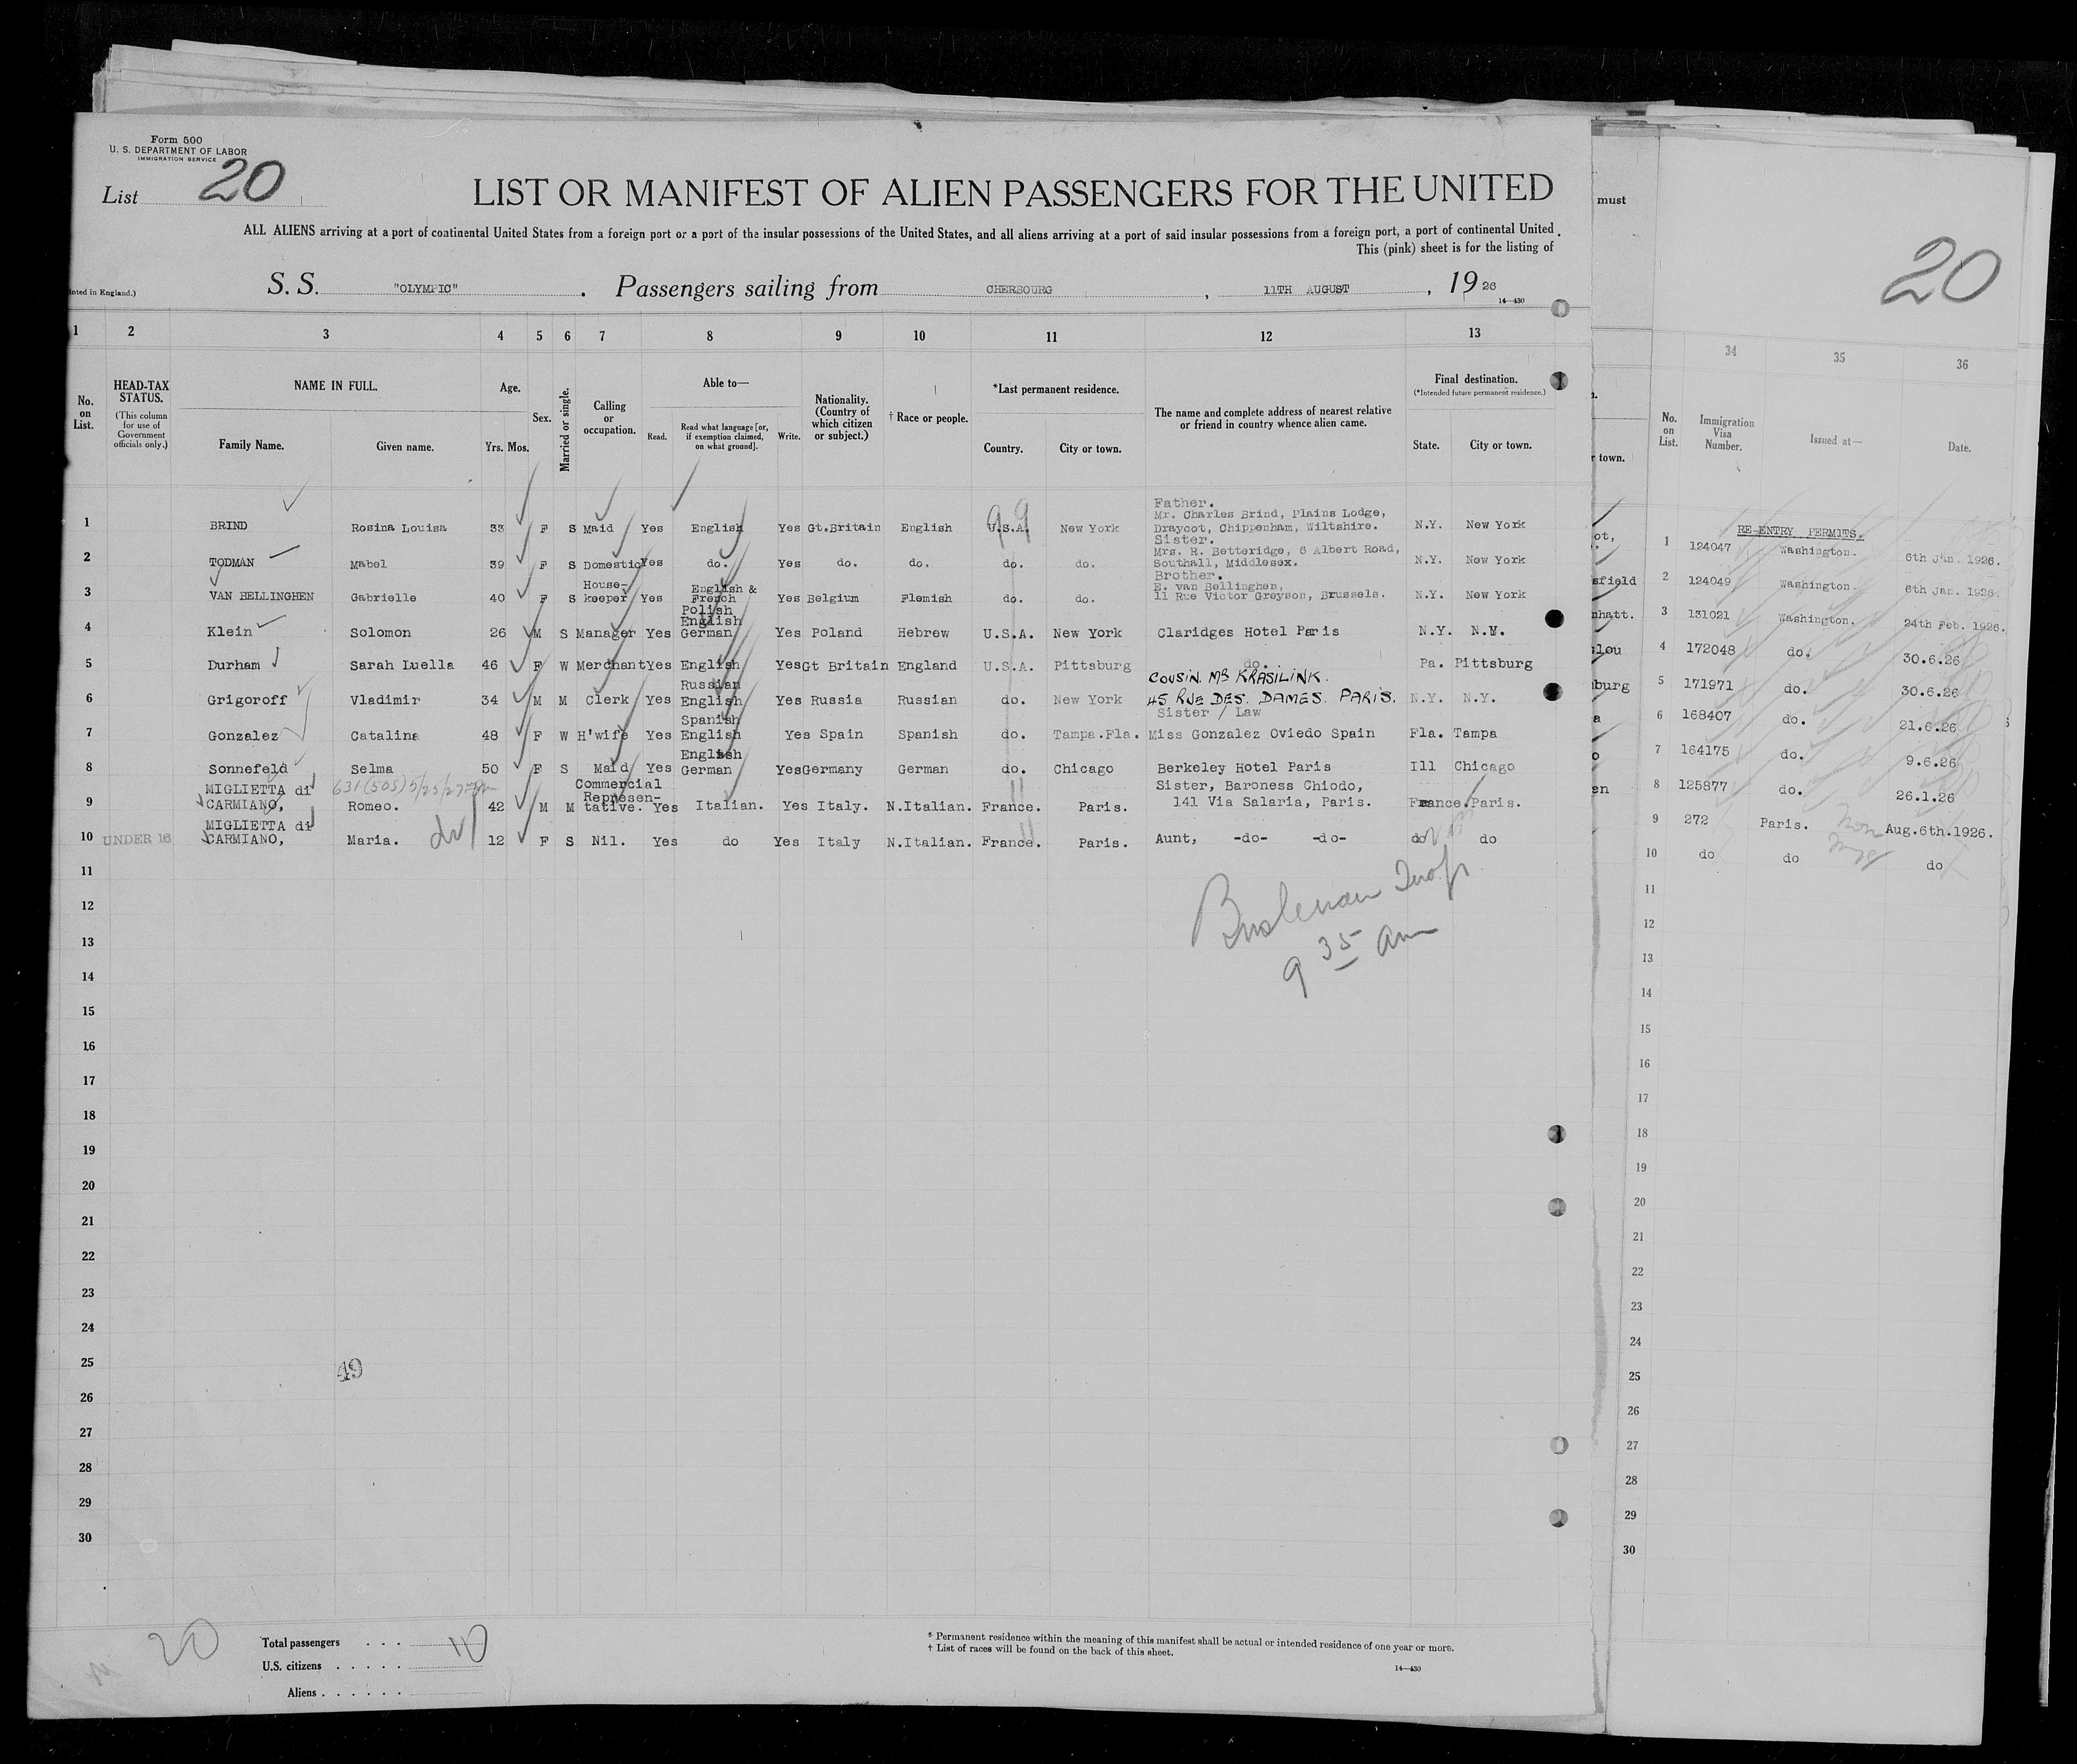 Form 500
U. S. DEPARTMENT OF LABOR
IMMIGRATION SERVICE
List 20
LIST OR MANIFEST OF ALIEN PASSENGERS FOR THE UNITED
ALL ALIENS arriving at a port of continental United States from a foreign port or a port of the insular possessions of the United States, and all aliens arriving at a port of said insular possessions from a foreign port, a port of continental United
This (pink) sheet is for the listing of
inted in England.)
S. S. "OLYMPIC" Passengers sailing from CHERBOURG, 11TH AUGUST, 1926
14—430
1 2 3 4 5 6 7 8 9 10 11 12 13
No. on List.
HEAD-TAX STATUS.
(This column for use of Government officials only.)
NAME IN FULL.
Family Name. Given name.
Age.
Yrs. Mos.
Sex.
Married or single.
Calling or occupation.
Able to—
Read. Read what language [or, if exemption claimed, on what ground]. Write.
Nationality. (Country of which citizen or subject.)
† Race or people.
*Last permanent residence.
Country. City or town.
The name and complete address of nearest relative or friend in country whence alien came.
Final destination.
(*Intended future permanent residence.)
State. City or town.
1 BRIND Rosina Louisa 33 F S Maid Yes English Yes Gt.Britain English U.S.A. New York Father. Mr. Charles Brind, Plains Lodge, Draycot, Chippenham, Wiltshire. N.Y. New York
2 TODMAN Mabel 39 F S Domestic Yes do. Yes do. do. do. do. Sister. Mrs. R. Betteridge, 6 Albert Road, Southall, Middlesex. N.Y. New York
3 VAN BELLINGHEN Gabrielle 40 F S House-keeper Yes English & French Yes Belgium Flemish do. do. Brother. E. van Bellinghen, 11 Rue Victor Greyson, Brussels. N.Y. New York
4 Klein Solomon 26 M S Manager Yes Polish English German Yes Poland Hebrew U.S.A. New York Claridges Hotel Paris N.Y. N.Y.
5 Durham Sarah Luella 46 F W Merchant Yes English Yes Gt Britain England U.S.A. Pittsburg do. Pa. Pittsburg
6 Grigoroff Vladimir 34 M M Clerk Yes Russian English Yes Russia Russian do. New York COUSIN. MR KRASILINK. 45 RUE DES. DAMES. PARIS. N.Y. N.Y.
7 Gonzalez Catalina 48 F W H'wife Yes Spanish English Yes Spain Spanish do. Tampa.Fla. Sister / Law Miss Gonzalez Oviedo Spain Fla. Tampa
8 Sonnefeld Selma 50 F S Maid Yes English German Yes Germany German do. Chicago Berkeley Hotel Paris Ill Chicago
9 MIGLIETTA di CARMIANO, Romeo. 42 M M Commercial Represen-tative. Yes Italian. Yes Italy. N.Italian. France. Paris. Sister, Baroness Chiodo, 141 Via Salaria, Paris. France. Paris.
10 UNDER 16 MIGLIETTA di CARMIANO, Maria. 12 F S Nil. Yes do Yes Italy N.Italian. France. Paris. Aunt, -do- -do- do do
11
12
13
9 35 am
14
15
16
17
18
19
20
21
22
23
24
25
49
26
27
28
29
30
20
Total passengers 10
U.S. citizens
Aliens
* Permanent residence within the meaning of this manifest shall be actual or intended residence of one year or more.
† List of races will be found on the back of this sheet.
14—430
must
20
34 35 36
No. on List.
Immigration Visa Number.
Issued at—
Date.
r town.
RE-ENTRY PERMITS.
1 124047 Washington. 6th Jan. 1926.
2 124049 Washington. 6th Jan. 1926.
3 131021 Washington. 24th Feb. 1926.
4 172048 do. 30.6.26
5 171971 do. 30.6.26
6 168407 do. 21.6.26
7 164175 do. 9.6.26
8 125877 do. 26.1.26
9 272 Paris. Aug.6th.1926.
10 do do do
11
12
13
14
15
16
17
18
19
20
21
22
23
24
25
26
27
28
29
30